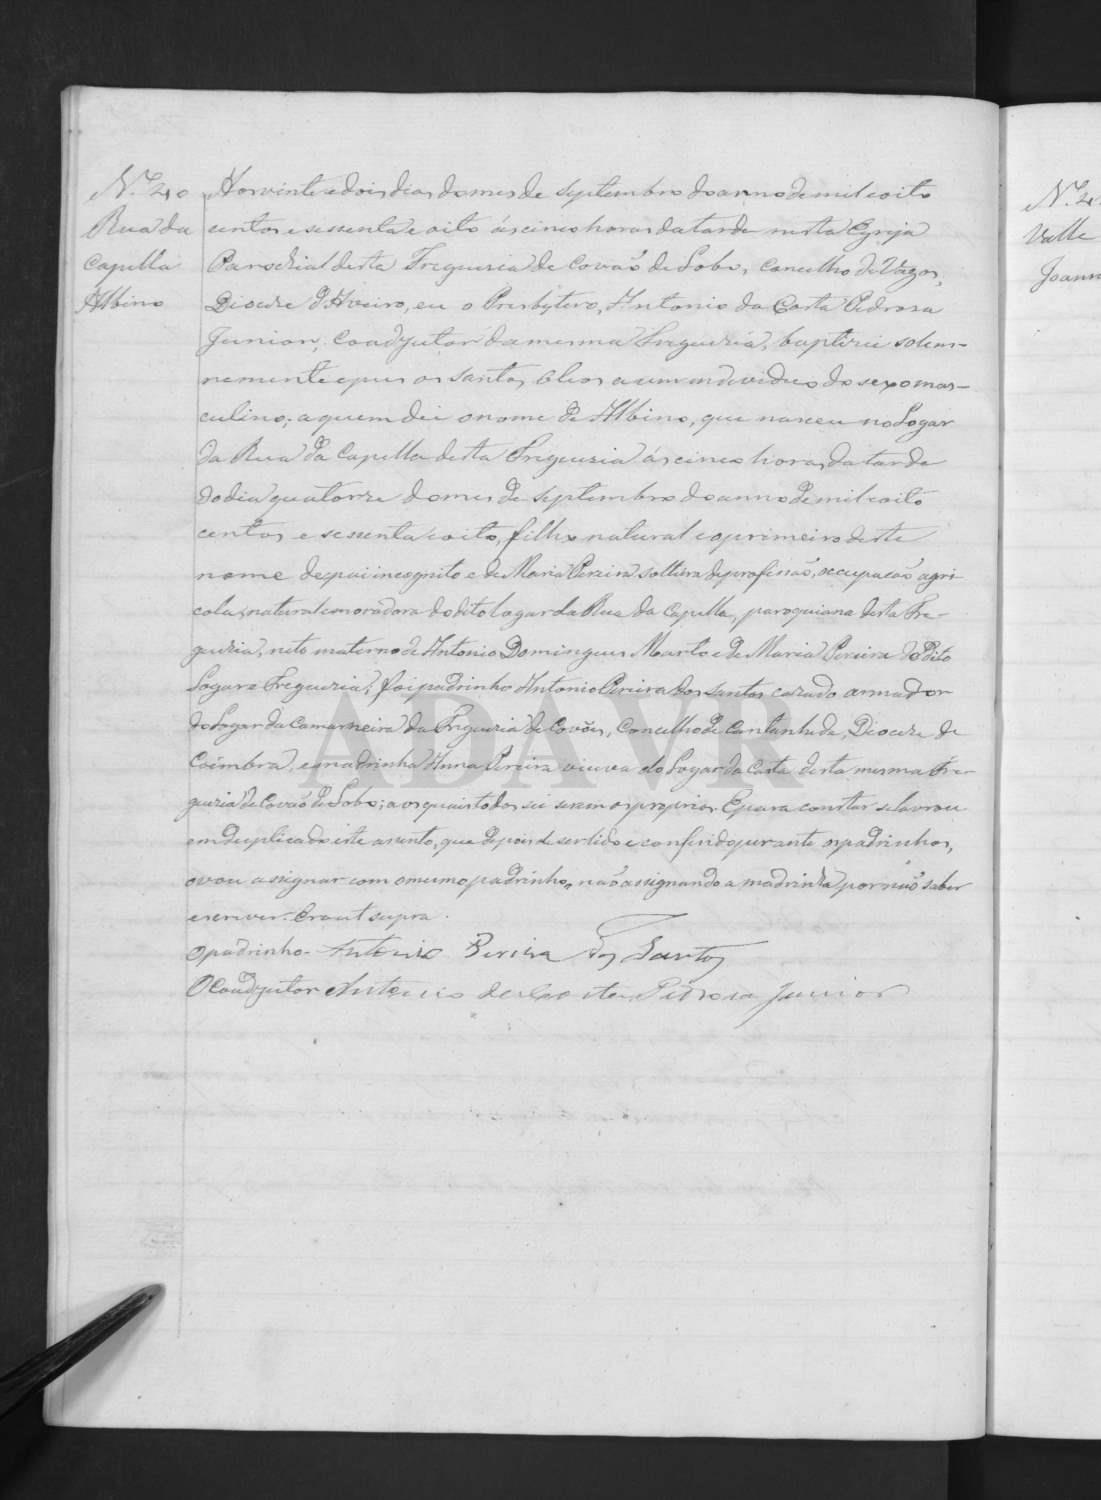 N.º 40
Rua da
Capella
Albino
Aos vinte e dois dias do mes de Septembro do anno de mil e oito
centos e sessenta e oito ás cinco horas da tarde nesta Egreja
Parochial desta Freguesia de Covão de Lobo, Concelho de Vagos,
Diocese d'Aveiro, eu o Presbytero, Antonio da Costa Pedrosa
Junior, Coadjutor da mesma Freguezia, baptizei solem-
nemente e pus os Santos Oleos a um individuo do sexo mas-
culino; a quem dei o nome de Albino, que nasceu no Logar
da Rua da Capella desta Freguezia ás cinco horas da tarde
do dia quatorze do mes de Septembro do anno de mil e oito
centos e sessenta e oito, filho natural e o primeiro deste
nome de pai incognito e de Maria Pereira solteira de profissão, occupacão agri-
cola, natural e moradora do dito logar da Rua da Capella, paroquiana desta Fre-
guezia, neto materno de Antonio Domingues Marto e de Maria Pereira do Dito
Logar e Freguezia; foi padrinho Antonio Pereira dos Santos casado armador
do Logar da Camarneira da Freguezia de Covões, Concelho de Cantanhede, Diocese de
Coimbra, e madrinha Anna Pereira viuva do Logar da Costa desta mesma Fre-
guezia de Covão de Lobo; aos quais todos sei serem os proprios. E para constar se lavrou
em duplicado este assento, que depois de ser lido e conferido perante os padrinhos,
o vou assignar com o mesmo padrinho, não assignando a madrinha por não saber
escrever. Era ut supra.
O padrinho - Antonio Pereira dos Santos
O Coadjutor Antonio da Costa Pedrosa Junior
N.º 4
Valle
Joann
ADAVR